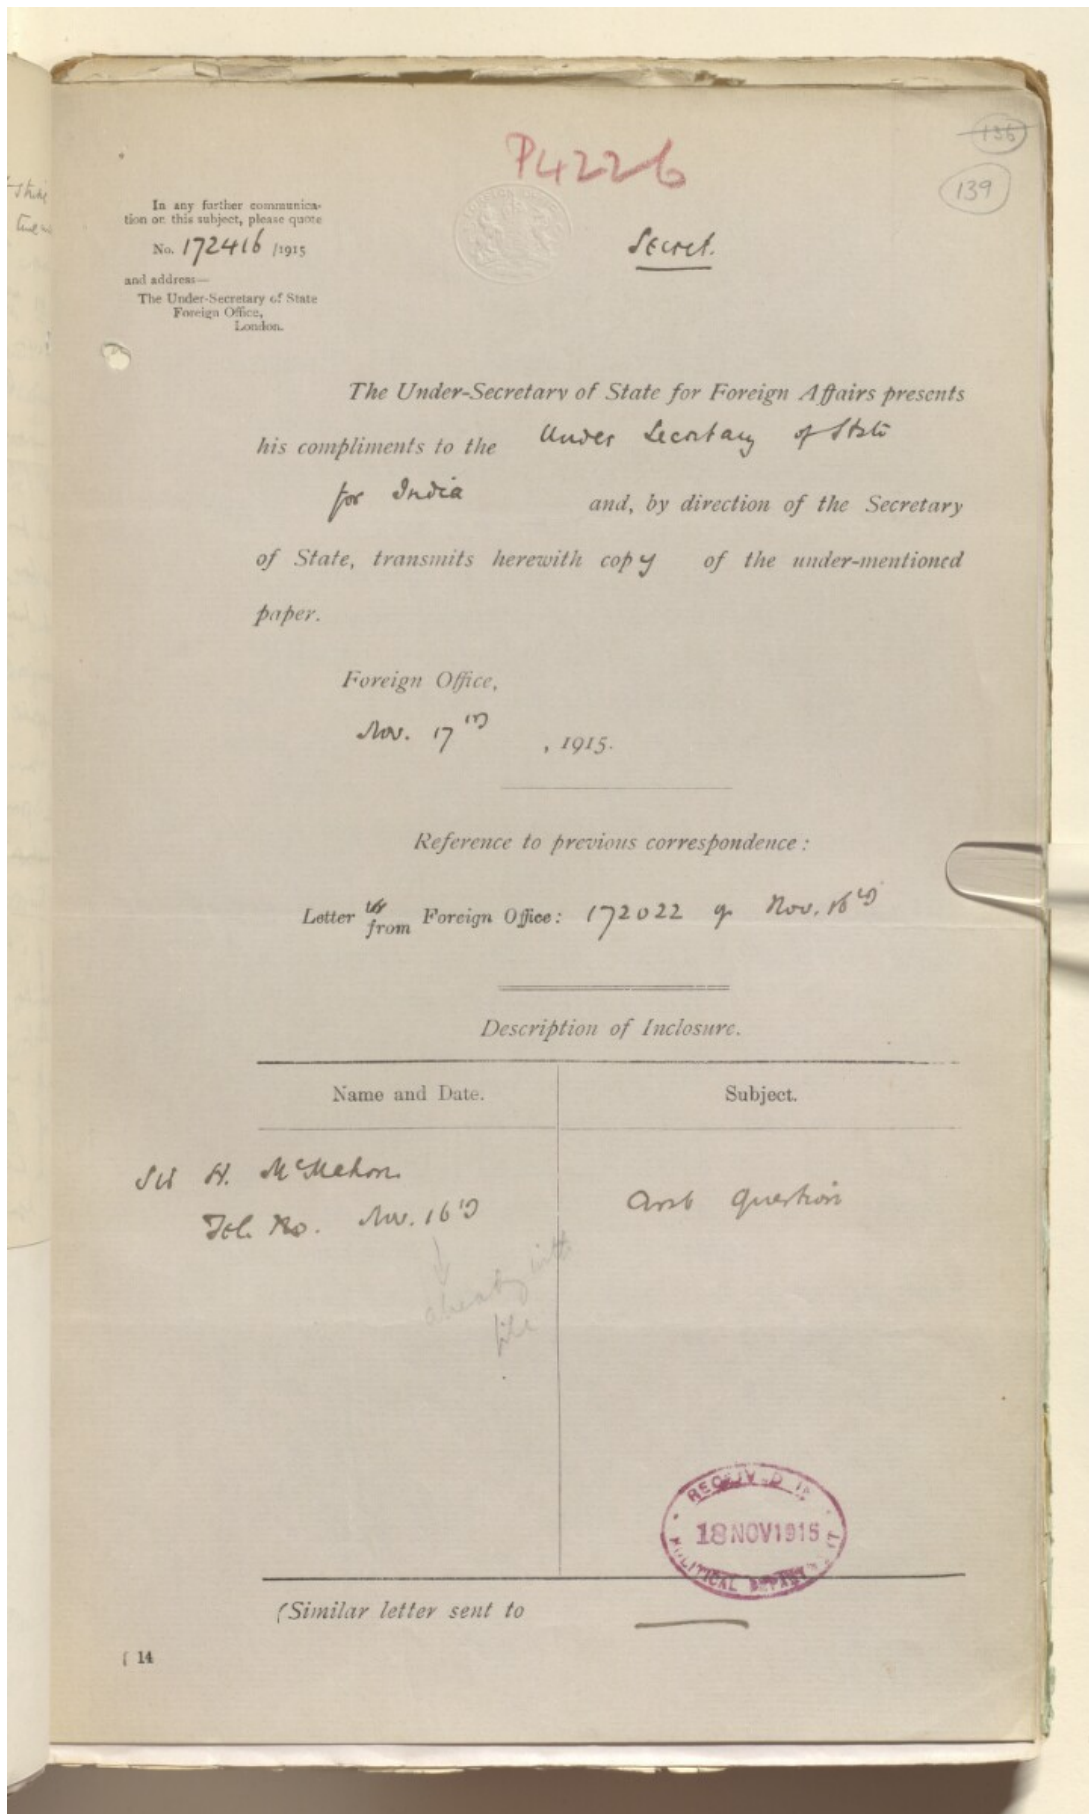 P4226
135
139
In any further communica-
tion on this subject, please quote
No. 172416/1915
and address—
The Under-Secretary of State
Foreign Office,
London.
Secret.
The Under-Secretary of State for Foreign Affairs presents
his compliments to the Under Secretary of State
for India and, by direction of the Secretary
of State, transmits herewith copy of the under-mentioned
paper.
Foreign Office,
Nov. 17th, 1915.
Reference to previous correspondence:
Letter from Foreign Office: 172022 of Nov. 16th
Description of Inclosure.
Name and Date. Subject.
Sir H. McMahon
Tel. No. Nov. 16th
Arab question
already with
file
RECEIVED IN
18 NOV 1915
POLITICAL DEPARTMENT
(Similar letter sent to
( 14